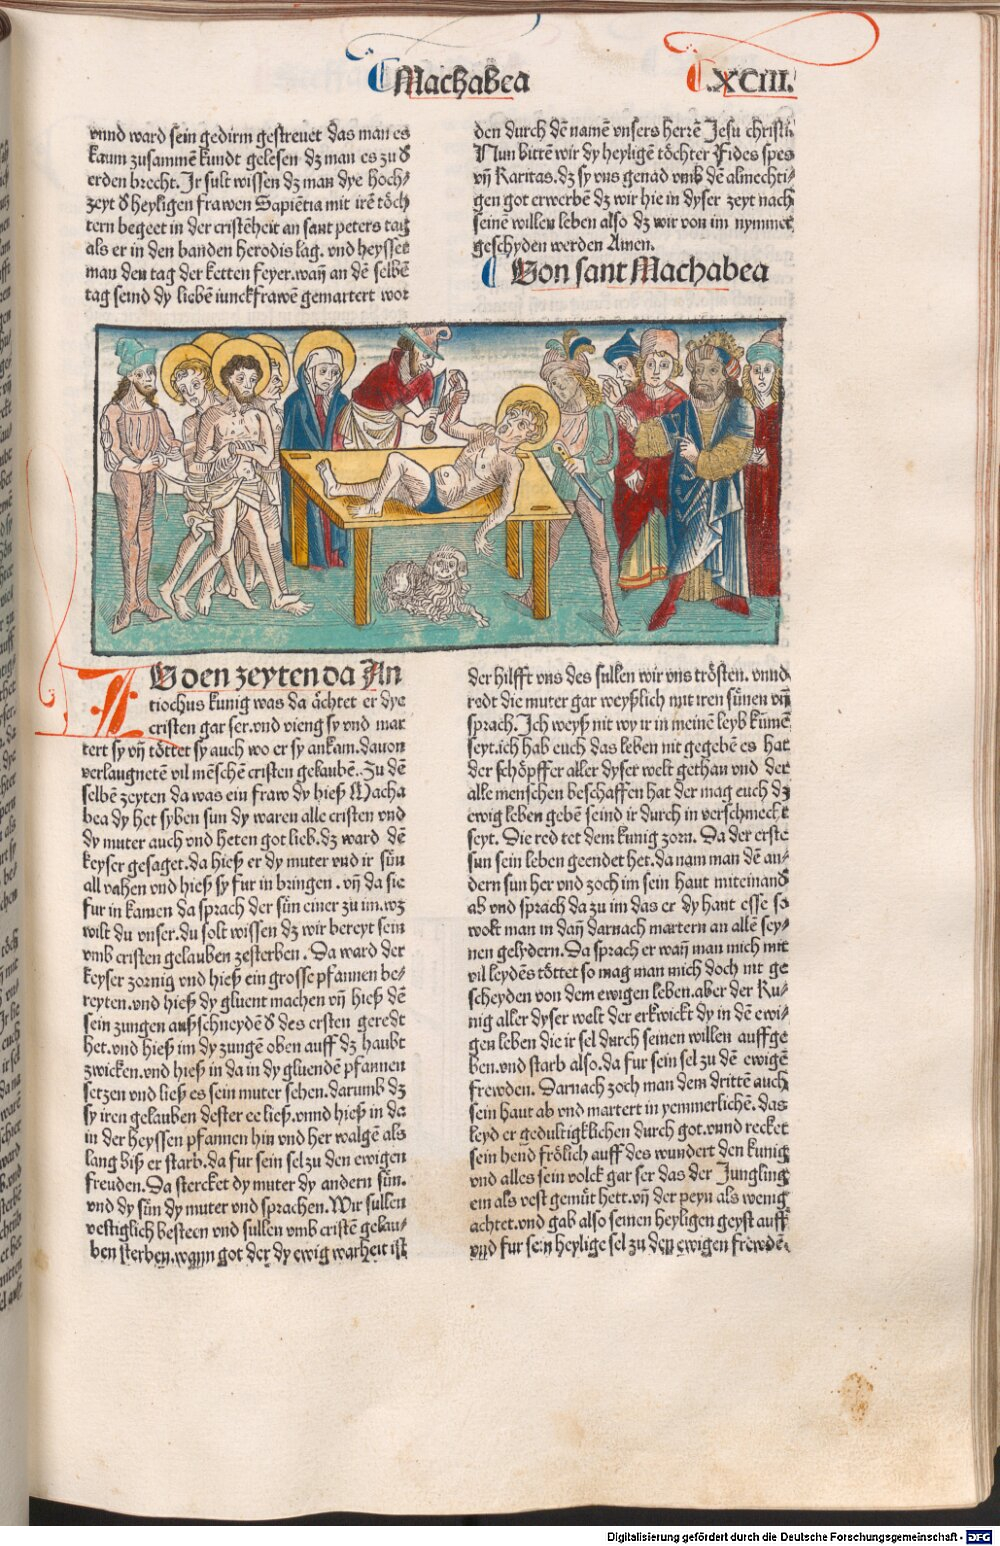 Machabea
XCIII.
vnnd ward sein gedirm gestrevet das man es
kaum zusammē kundt gelesen dz man es zu d̕
erden brecht. Jr sult wissen dz man dye hoch⸗
zeyt d̕ heyligen frawen Sapiētia mit irē töch
tern begeet in der cristēheit an sant peters tag
als er in den banden herodis lag. vnd heysset
man den tag der ketten feyer. wañ an dē selbē
tag seind dy liebē iunckfrawē gemartert wor
den durch dē namē vnsers herrē Jesu christi.
Nun bittē wir dy heyligē töchter Fides spes
vñ Karitas. dz sy vns genad vmb dē almechti⸗
gen got erwerbē dz wir hie in dyser zeyt nach
seinē willen leben also dz wir von im nymmer
geschyden werden Amen.
Von sant Machabea
ZV den zeyten da An
tiochus kunig was da ächtet er dye
cristen gar ser. vnd vieng sy vnd mar
tert sy vñ töttet sy auch wo er sy ankam. davon
verlaugnetē vil mēschē cristen gelaubē. Zu dē
selbē zeyten da was ein fraw dy hieß Macha
bea dy het syben sun dy waren alle cristen vnd
dy muter auch vnd heten got lieb. dz ward dē
keyser gesaget. da hieß er dy muter vnd ir sün
all vahen vnd hieß sy fur in bringen. vñ da sie
fur in kamen da sprach der sün einer zu im. wz
wilt du vnser. du solt wissen dz wir bereyt sein
vmb cristen gelauben zesterben. Da ward der
keyser zornig vnd hieß ein grosse pfannen be⸗
reyten. vnd hieß dy gluent machen vñ hieß dē
sein zungen außschneydē d̕ des ersten geredt
het. vnd hieß im dy zungē oben auff dz haubt
zwicken. vnd hieß in da in dy gluendē pfannen
setzen vnd ließ es sein muter sehen. darumb dz
sy iren gelauben dester ee ließ. vnnd hieß in da
in der heyssen pfannen hin vnd her walgē als
lang biß er starb. da fur sein sel zu den ewigen
freuden. Da stercket dy muter dy andern sün.
vnd dy sün dy muter vnd sprachen. Wir sullen
vestiglich besteen vnd sullen vmb cristē gelau⸗
ben sterben. wann got der dy ewig warheit ist
der hilfft vns des sullen wir vns trösten. vnnd
redt die muter gar weyßlich mit iren sünen vñ
sprach. Ich weyß nit wy ir in meinē leyb kumē
seyt. ich hab euch das leben nit gegebē es hat
der schöpffer aller dyser welt gethan vnd der
alle menschen beschaffen hat der mag euch dz
ewig leben gebē seind ir durch in verschmecht
seyt. Die red tet dem kunig zorn. Da der erste
sun sein leben geendet het. da nam man dē an⸗
dern sun her vnd zoch im sein haut miteinand̕
ab vnd sprach da zu im das er dy haut esse so
wolt man in dañ darnach martern an allē sey⸗
nen gelydern. Da sprach er wañ man mich mit
vil leydēs töttet so mag man mich doch nit ge
scheyden von dem ewigen leben. aber der Ku⸗
nig aller dyser welt der erkwickt dy in dē ewi⸗
gen leben die ir sel durch seinen willen auffge
ben. vnd starb also. da fur sein sel zu dē ewigē
frewden. Darnach zoch man dem drittē auch
sein haut ab vnd martert in yemmerlichē. das
leyd er gedultigklichen durch got. vnnd recket
sein hend frölich auff des wundert den kunig
vnd alles sein volck gar ser das der Jungling
ein als vest gemüt hett. vñ der peyn als wenig
achtet. vnd gab also seinen heyligen geyst auff
vnd fur sein heylige sel zu den ewigen frewdē.
Digitalisierung gefördert durch die Deutsche Forschungsgemeinschaft - DFG